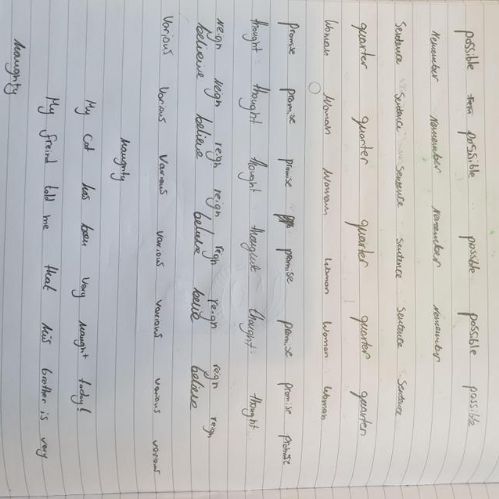 possible possible possible possible possible
Remember Remember Remember remember
Sentence sentence sentence sentence Sentence Sentence
quarter quarter quarter quarter quarter
Woman Woman Woman Woman Woman
promise promise promise promise promise promise promise
thought thought thought thought thought thought
reign reign reign reign reign reign reign reign
believe believe believe believe
Various Various Various various various various various
Naughty
My cat has been very naught today!
My freind told me that his brother is very
Naughty